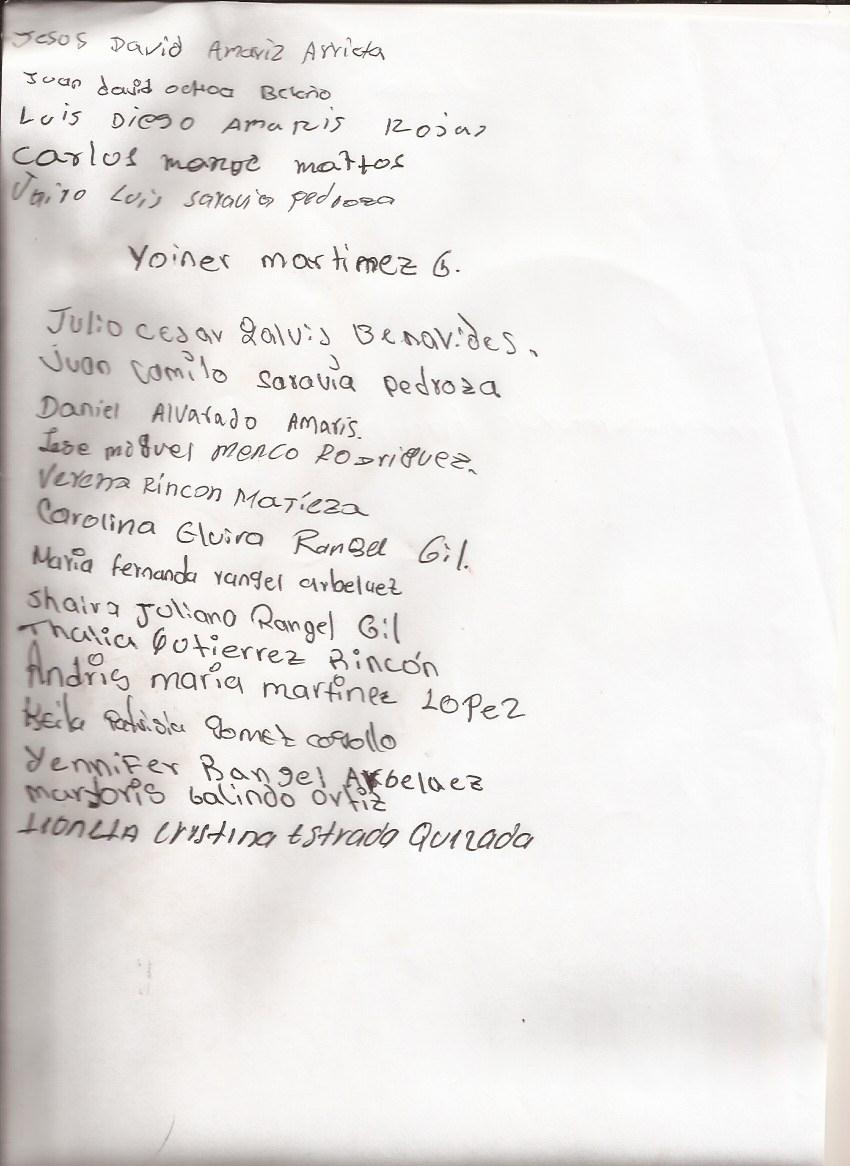 Jesos David Amariz Arrieta
Juan david ochoa Beleño
Luis Diego Amaris Rojas
Carlos mattos
Jairo Luis saravia pedroza
Yoiner martinez G.
Julio cesar galvis Benavides.
Juan camilo saravia pedroza
Daniel Alvarado Amaris.
Jose miguel Menco Rodriguez.
Verena Rincon Matieza
Carolina Elvira Rangel Gil.
Maria fernanda rangel arbelaez
Shaira Juliano Rangel Gil
Thalia Gutierrez Rincón
Andris maria martinez Lopez
Keila gomez
Yennifer Rangel Arbelaez
marjoris Galindo Ortiz
Cristina Estrada Quezada